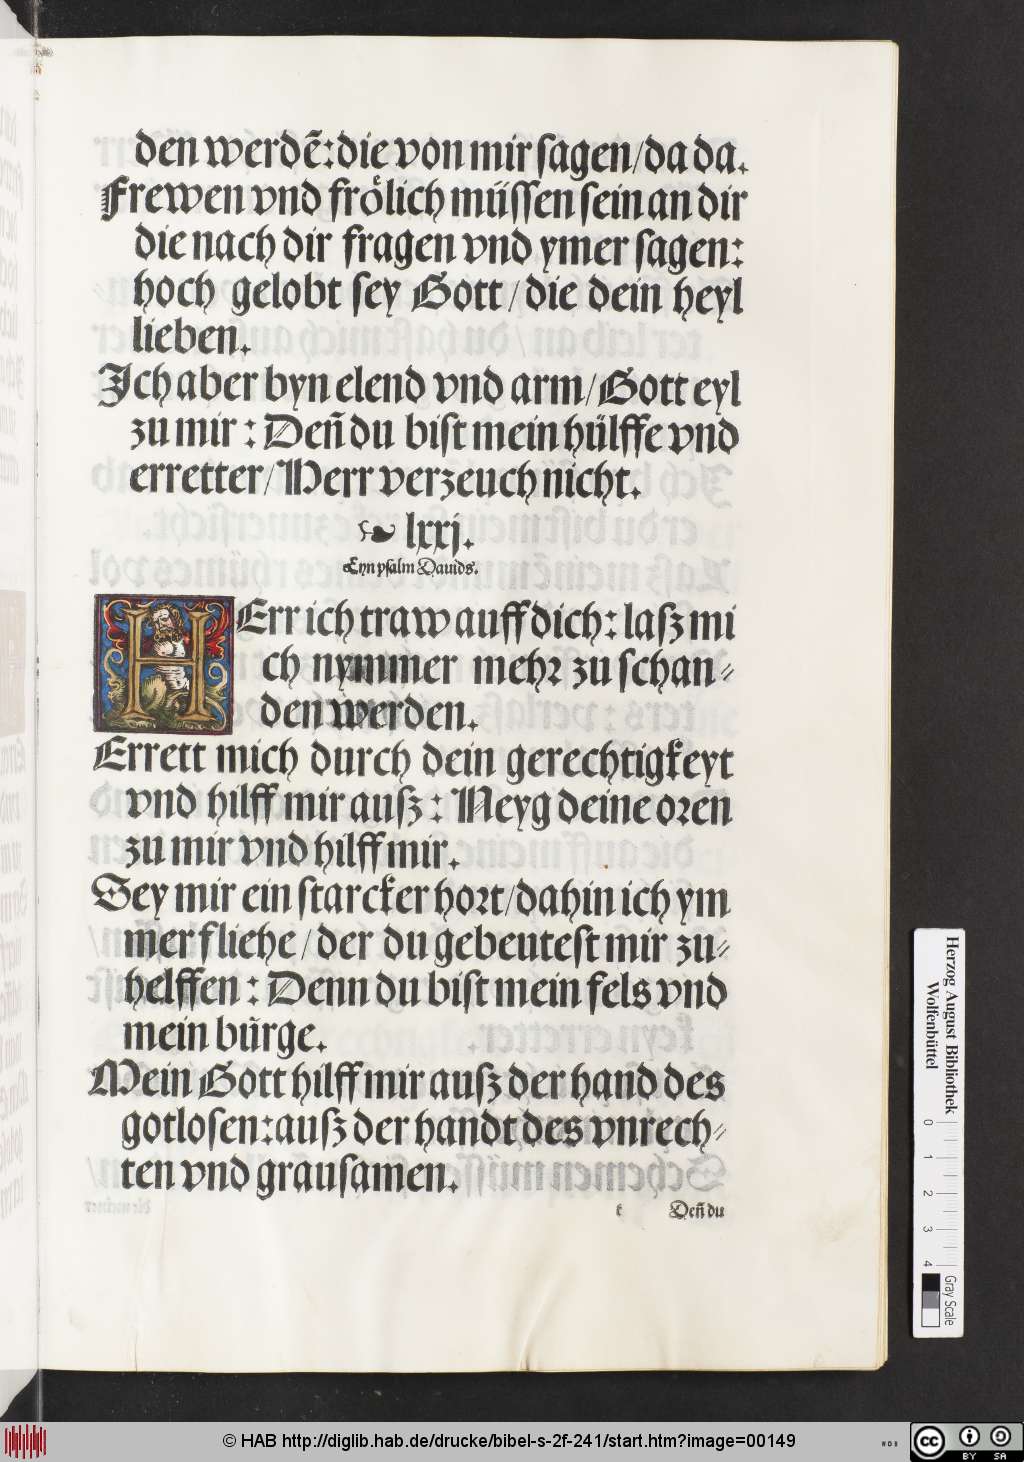 den werdē: die von mir sagen/ da da.
Frewen vnd frölich müssen sein an dir
die nach dir fragen vnd ymer sagen:
hoch gelobt sey Gott/ die dein heyl
lieben.
Ich aber byn elend vnd arm/ Gott eyl
zu mir: Deñ du bist mein hülffe vnd
erretter/ Herr verzeuch nicht.
☙ lxxj.
Eyn psalm Dauids.
HErr ich traw auff dich: lasz mi
ch nymmer mehr zu schan⸗
den werden.
Errett mich durch dein gerechtigkeyt
vnd hilff mir ausz: Neyg deine oren
zu mir vnd hilff mir.
Sey mir ein starcker hort/ dahin ich ym
mer fliehe/ der du gebeutest mir zu⸗
helffen: Denn du bist mein fels vnd
mein bürge.
Mein Gott hilff mir ausz der hand des
gotlosen: ausz der handt des vnrech⸗
ten vnd grausamen.
k Deñ du
Herzog August Bibliothek
Wolfenbüttel
0 1 2 3 4
Gray Scale
© HAB http://diglib.hab.de/drucke/bibel-s-2f-241/start.htm?image=00149
WDB
cc BY SA